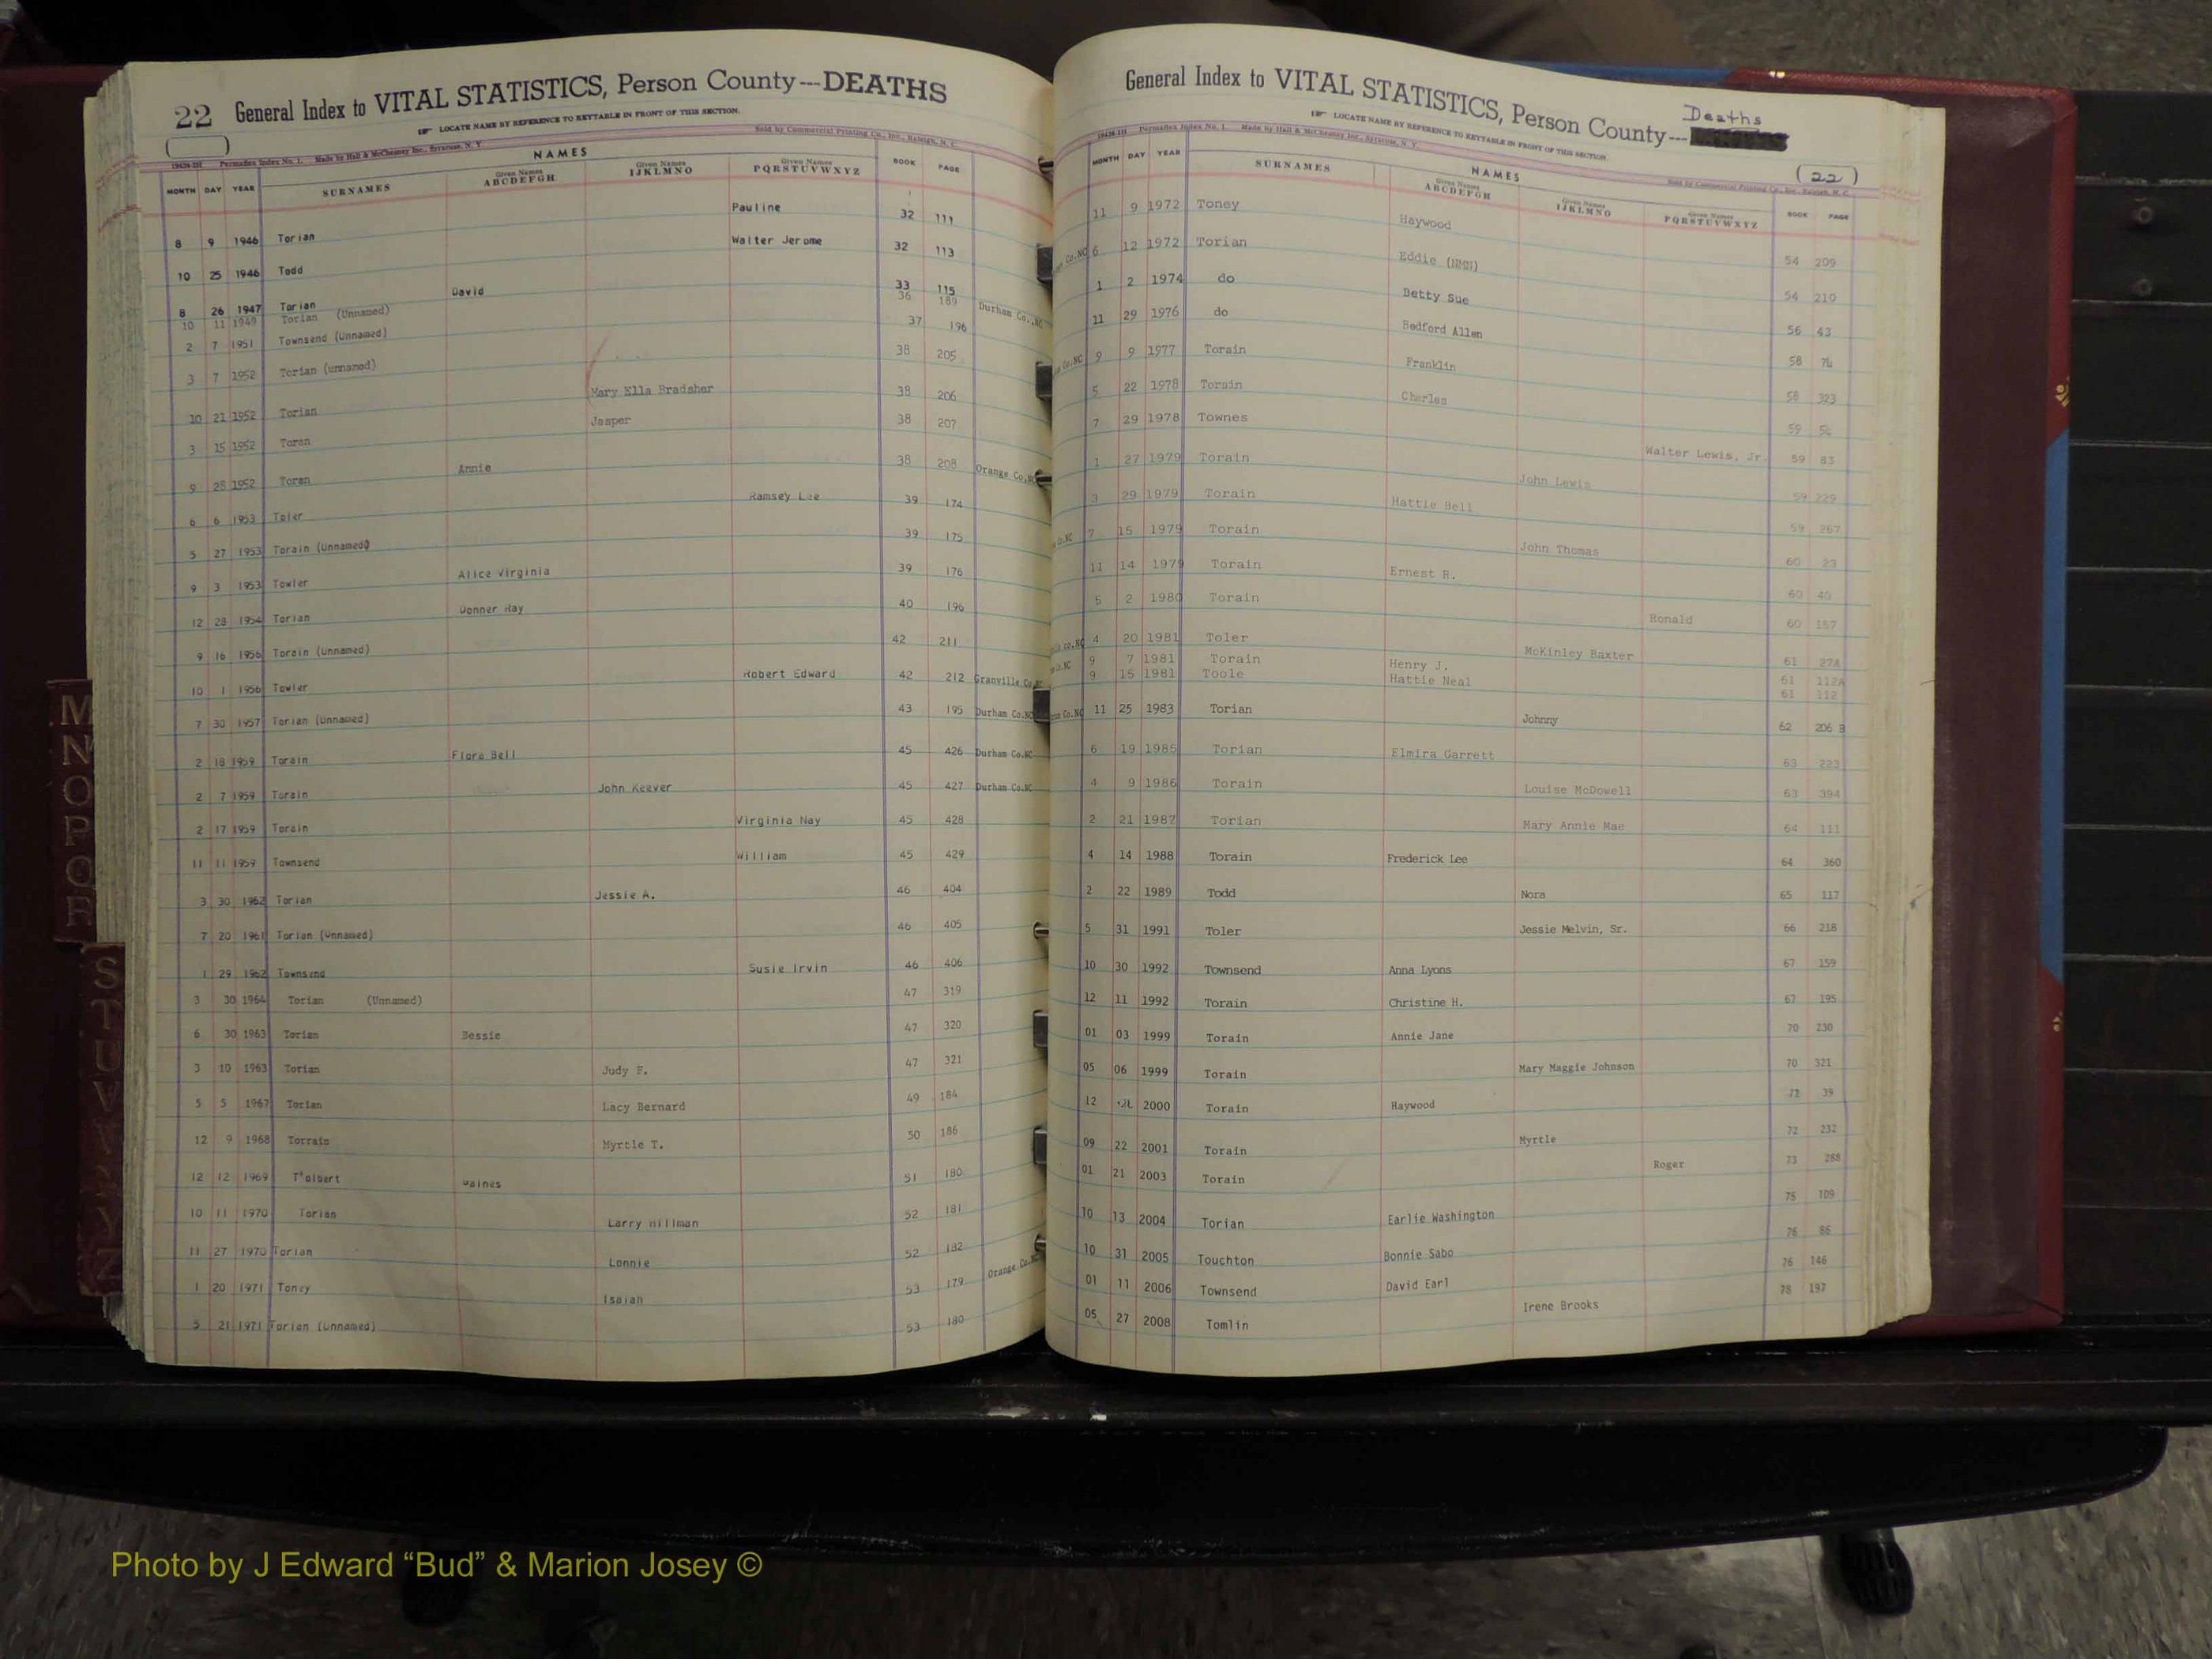 22 General Index to VITAL STATISTICS, Person County---DEATHS
LOCATE NAME BY REFERENCE TO KEYTABLE IN FRONT OF THIS SECTION.
Permaflex Index No. 1. Made by Hall & McChesney Inc., Syracuse, N. Y. Sold by Commercial Printing Co., Inc., Raleigh, N. C.
NAMES
MONTH DAY YEAR SURNAMES Given Names ABCDEFGH Given Names IJKLMNO Given Names PQRSTUVWXYZ BOOK PAGE
8 9 1946 Torian Pauline 32 111
10 25 1946 Todd Walter Jerome 32 113
8 26 1947 Torian David 33 115
10 11 1949 Torian (Unnamed) 36 189 Durham Co.,NC
2 7 1951 Townsend (Unnamed) 37 196
3 7 1952 Torian (unnamed) 38 205
10 21 1952 Torian Mary Ella Bradsher 38 206
3 15 1952 Toran Jasper 38 207
9 28 1952 Toran Annie 38 208 Orange Co.NC
6 6 1953 Toler Ramsey Lee 39 174
5 27 1953 Torain (Unnamed) 39 175
9 3 1953 Towler Alice Virginia 39 176
12 28 1954 Torian Donner Ray 40 196
9 16 1956 Torain (Unnamed) 42 211
10 1 1956 Towler Robert Edward 42 212 Granville Co.NC
7 30 1957 Torian (Unnamed) 43 195 Durham Co.NC
2 18 1959 Torain Flora Bell 45 426 Durham Co.NC
2 7 1959 Torain John Keever 45 427 Durham Co.NC
2 17 1959 Torain Virginia Nay 45 428
11 11 1959 Townsend William 45 429
3 30 1962 Torian Jessie A. 46 404
7 20 1961 Torian (Unnamed) 46 405
1 29 1962 Townsend Susie Irvin 46 406
3 30 1964 Torian (Unnamed) 47 319
6 30 1963 Torian Bessie 47 320
3 10 1963 Torian Judy F. 47 321
5 5 1967 Torian Lacy Bernard 49 184
12 9 1968 Torrain Myrtle T. 50 186
12 12 1969 T'olbert Gaines 51 180
10 11 1970 Torian Larry Hillman 52 181
11 27 1970 Torian Lonnie 52 182
1 20 1971 Toney Isaiah 53 179 Orange Co.NC
5 21 1971 Torian (Unnamed) 53 180
General Index to VITAL STATISTICS, Person County---
Deaths
LOCATE NAME BY REFERENCE TO KEYTABLE IN FRONT OF THIS SECTION.
Permaflex Index No. 1. Made by Hall & McChesney Inc., Syracuse, N. Y. Sold by Commercial Printing Co., Inc., Raleigh, N. C.
(22)
NAMES
MONTH DAY YEAR SURNAMES Given Names ABCDEFGH Given Names IJKLMNO Given Names PQRSTUVWXYZ BOOK PAGE
11 9 1972 Toney Haywood 54 209
Co.NC 6 12 1972 Torian Eddie (NMN) 54 210
1 2 1974 do Betty Sue 56 43
11 29 1976 do Bedford Allen 58 76
Co.NC 9 9 1977 Torain Franklin 58 323
5 22 1978 Torain Charles 59
7 29 1978 Townes Walter Lewis, Jr. 59 83
1 27 1979 Torain John Lewis 59 229
3 29 1979 Torain Hattie Bell 59 267
Co.NC 7 15 1979 Torain John Thomas 60 23
11 14 1979 Torain Ernest R. 60 40
5 2 1980 Torain Ronald 60 157
co.NC 4 20 1981 Toler McKinley Baxter 61 27A
Co.NC 9 7 1981 Torain Henry J. 61 112A
9 15 1981 Toole Hattie Neal 61 112
Co.NC 11 25 1983 Torian Johnny 62 206 B
6 19 1985 Torian Elmira Garrett 63 223
4 9 1986 Torain Louise McDowell 63 394
2 21 1987 Torian Mary Annie Mae 64 111
4 14 1988 Torain Frederick Lee 64 360
2 22 1989 Todd Nora 65 117
5 31 1991 Toler Jessie Melvin, Sr. 66 218
10 30 1992 Townsend Anna Lyons 67 159
12 11 1992 Torain Christine H. 67 195
01 03 1999 Torain Annie Jane 70 230
05 06 1999 Torain Mary Maggie Johnson 70 321
12 2000 Torain Haywood 72 39
09 22 2001 Torain Myrtle 72 232
01 21 2003 Torain Roger 73 288
10 13 2004 Torian Earlie Washington 75 109
10 31 2005 Touchton Bonnie Sabo 76 86
01 11 2006 Townsend David Earl 76 146
05 27 2008 Tomlin Irene Brooks 78 197
M
N
O
P
Q
R
S
T
U
V
Photo by J Edward “Bud” & Marion Josey ©